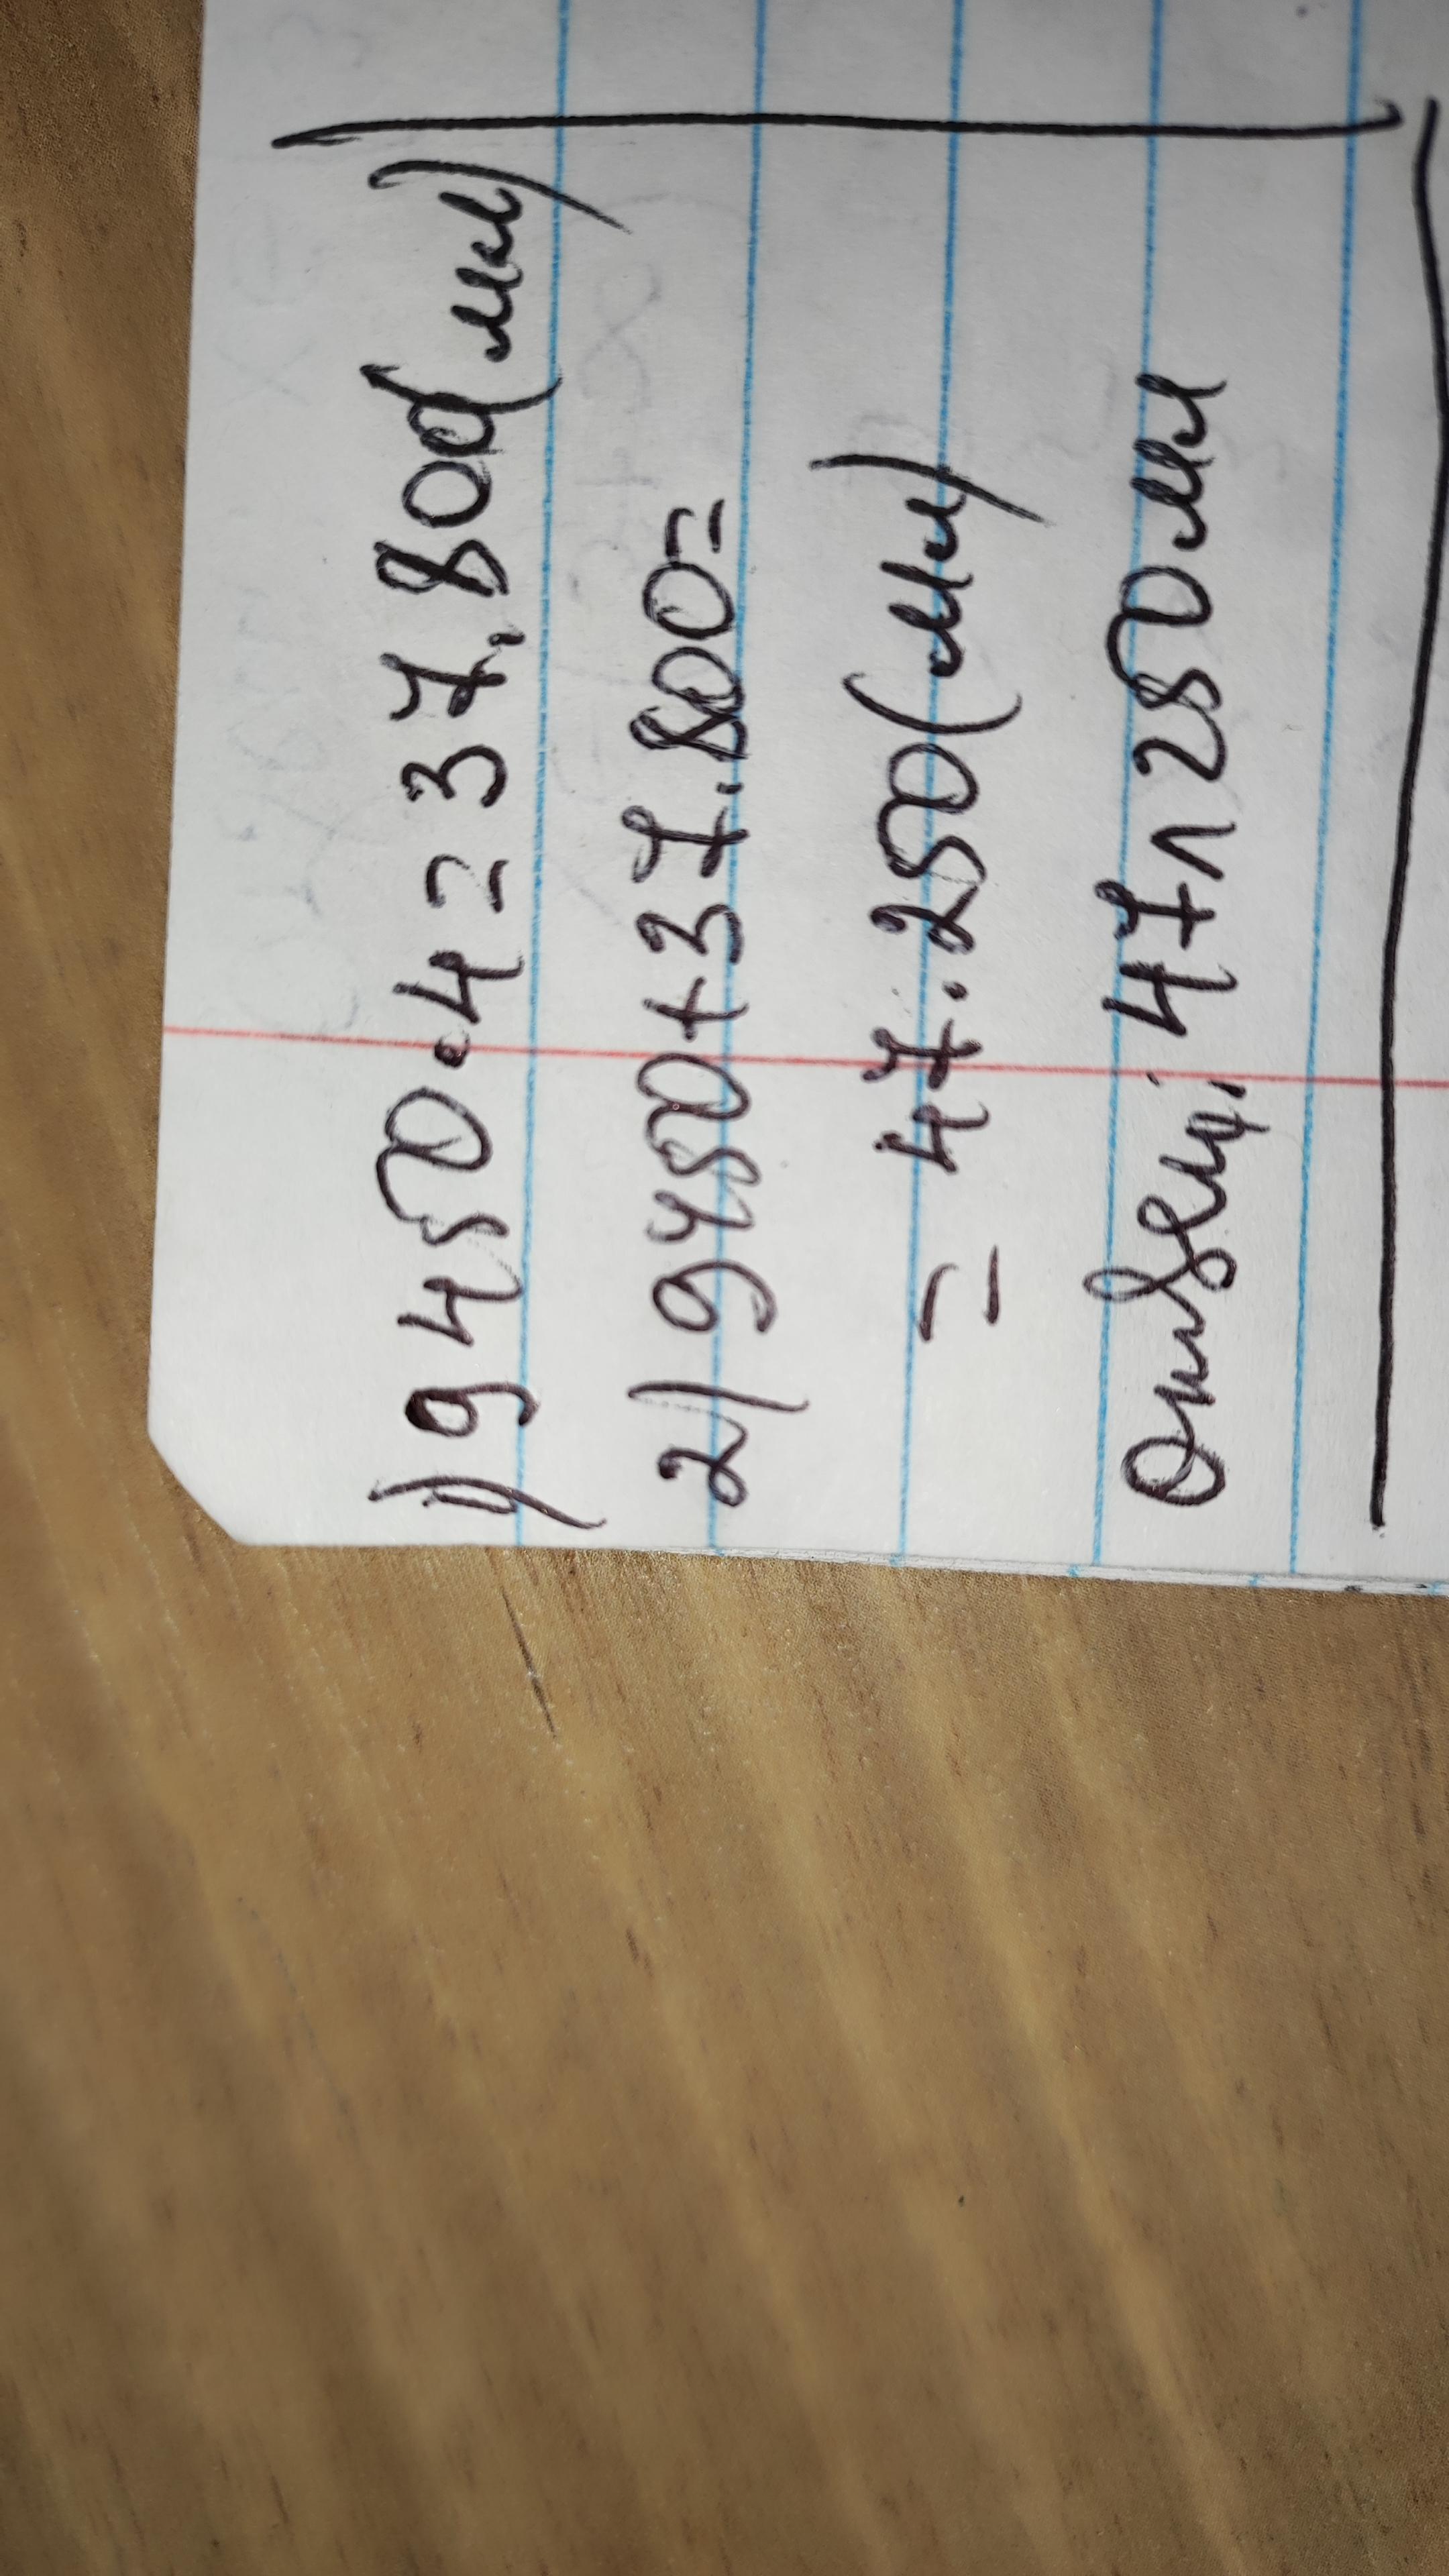 1) 9450·4=37.800(мл)
2) 9450+37.800=
= 47.250(мл)
Ответ: 47л 250мл